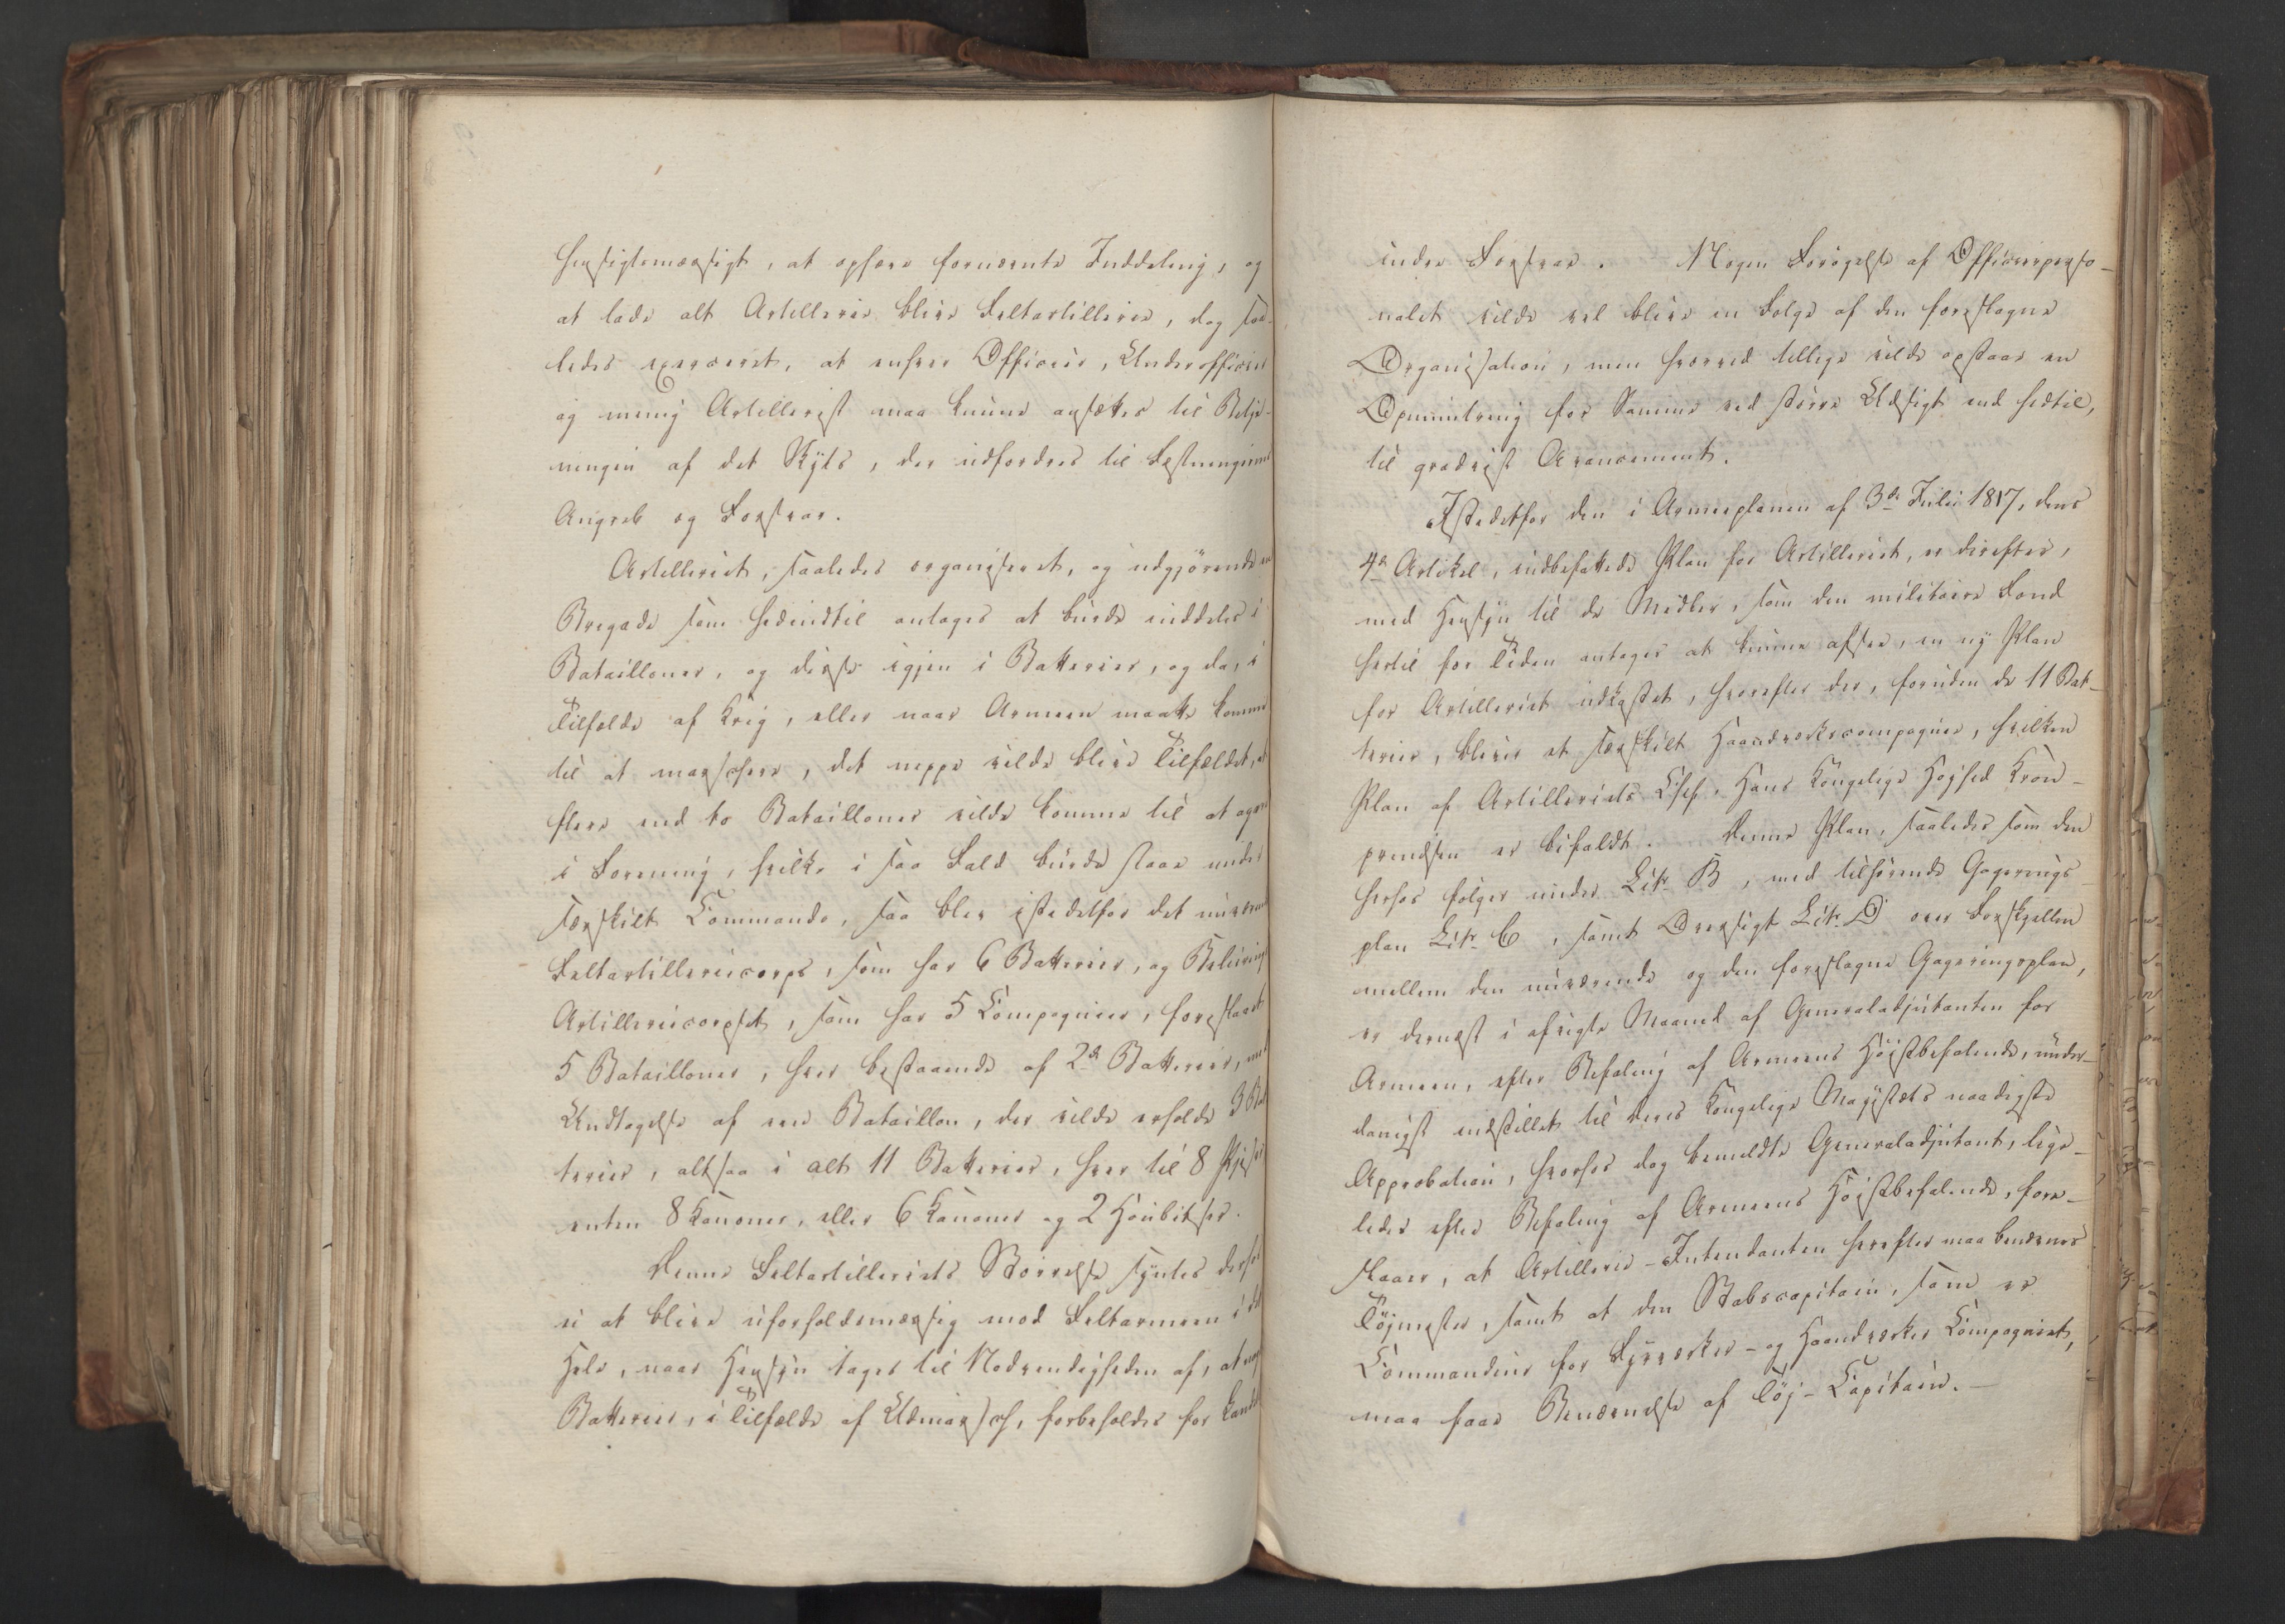 hensigtsmæssigt, at ophæve fornævnte Inddeling, og
at lade alt Artillerie blive Feltartillerie, dog saa-
ledes exerceret, at enhver Officier, Underofficier
og menig Artillerist maa kunne ansættes til Betje-
ningen af det Skyts, der udfordres til Fæstningernes
Angreb og Forsvar.
Artilleriet, saaledes organiseret, og udgjörende en
Bregade som hedindtil antages at burde inddeles i
Batailloner, og disse igjen i Batterier, og da, i
Tilfælde af Krig, eller naar Armeen maatte komme
til at marschere, det neppe vilde blive Tilfældet, at
flere end to Batailloner vilde komme til at agere
i Forening, hvilke i saa Fald burde staae under
særskilt Commando, saa blev istedetfor det nuværende
Feltartilleriecorps, som har 6 Batterier, og
Artilleriecorpset, som har 5 Compagnier, foreslaaet
5 Batailloner, hver bestaaende af 2de Batterier, med
Undtagelse af een Bataillon, der vilde erholde 3 Bat-
terier, altsaa i alt 11 Batterier, hver til 8 Piecer
enten 8 Kanoner, eller 6 Kanoner og 2 Houbitser.
Denne Feltartilleriets Störrelse syntes derfor
ei at blive uforholdsmæssig mod Feltarmeen i det
Hele, naar Hensyn tages til Nödvendigheden af, at nogle
Batterier, i Tilfælde af Udmarsch, forbeholdes for Landets
indre Forsvar. Nogen Forögelse af Officierperso-
nalet vilde vel blive en Fölge af den foreslagne
Organisation, men hvorved tillige vilde opstaae en
Opmuntring for Samme ved större Udsigt end hidtil,
til gradvist Avancement.
Istedetfor den i Armeeplanen af 3de Julii 1817, dens
4de Artikel, indbefattede Plan for Artilleriet, er derefter,
med Hensyn til de Midler, som den militaire Fond
hertil for Tiden antages at kunne afsee, en ny Plan
for Artilleriet udkastet, hvorefter der, foruden de 11 Bat-
terier, bliver et særskilt Haandværkscompagnie, hvilken
Plan af Artilleriets Chef, Hans Kongelige Höihed Kron-
prindsen er bifaldt. Denne Plan, saaledes som den
herhos fölger under Litr. B, med tilhörende Gagerings-
plan Litr. C, samt Oversigt Litr. D over Forskjellen
mellem den nuværende og den foreslagne Gageringsplan,
er dernæst i afvigte Maaned af Generaladjutanten for
Armeen, efter Befaling af Armeens Höistbefalende, under-
danigst indstillet til Deres Kongelige Majestæts naadigste
Approbation, hvorhos dog bemeldte Generaladjutant, lige-
ledes efter Befaling af Armeens Höistbefalende, fore-
slaaer, at Artillerie-Intendanten herefter maa benævnes
Töimester, samt at den Stabscapitain, som er
Commandeur for Fyrværker- og Haandværker Compagniet,
maa faae Benævnelse af Töj-Capitain.-